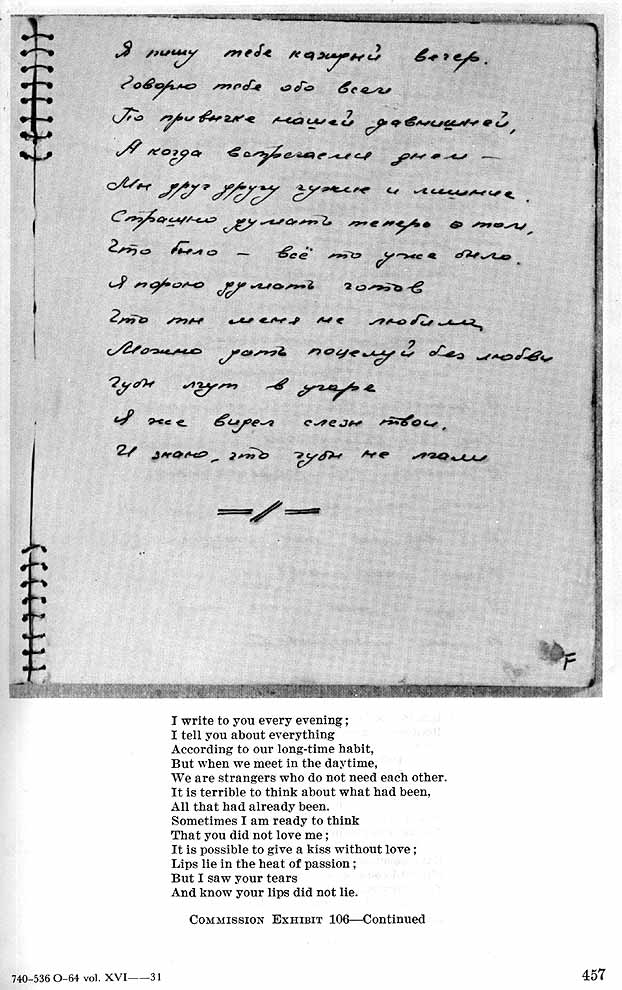 Я пишу тебе каждый вечер.
Говорю тебе обо всем
По привычке нашей давнишней,
А когда встречаемся днем –
Мы друг другу чужие и лишние.
Страшно думать теперь о том,
Что было – всё то уже было.
Я порою думать готов
Что ты меня не любила,
Можно дать поцелуй без любви
Губы лгут в угаре
Я же видел слезы твои.
И знаю, что губы не лгали
F
I write to you every evening;
I tell you about everything
According to our long-time habit,
But when we meet in the daytime,
We are strangers who do not need each other.
It is terrible to think about what had been,
All that had already been.
Sometimes I am ready to think
That you did not love me;
It is possible to give a kiss without love;
Lips lie in the heat of passion;
But I saw your tears
And know your lips did not lie.
COMMISSION EXHIBIT 106—Continued
740-536 O-64 vol. XVI——31
457